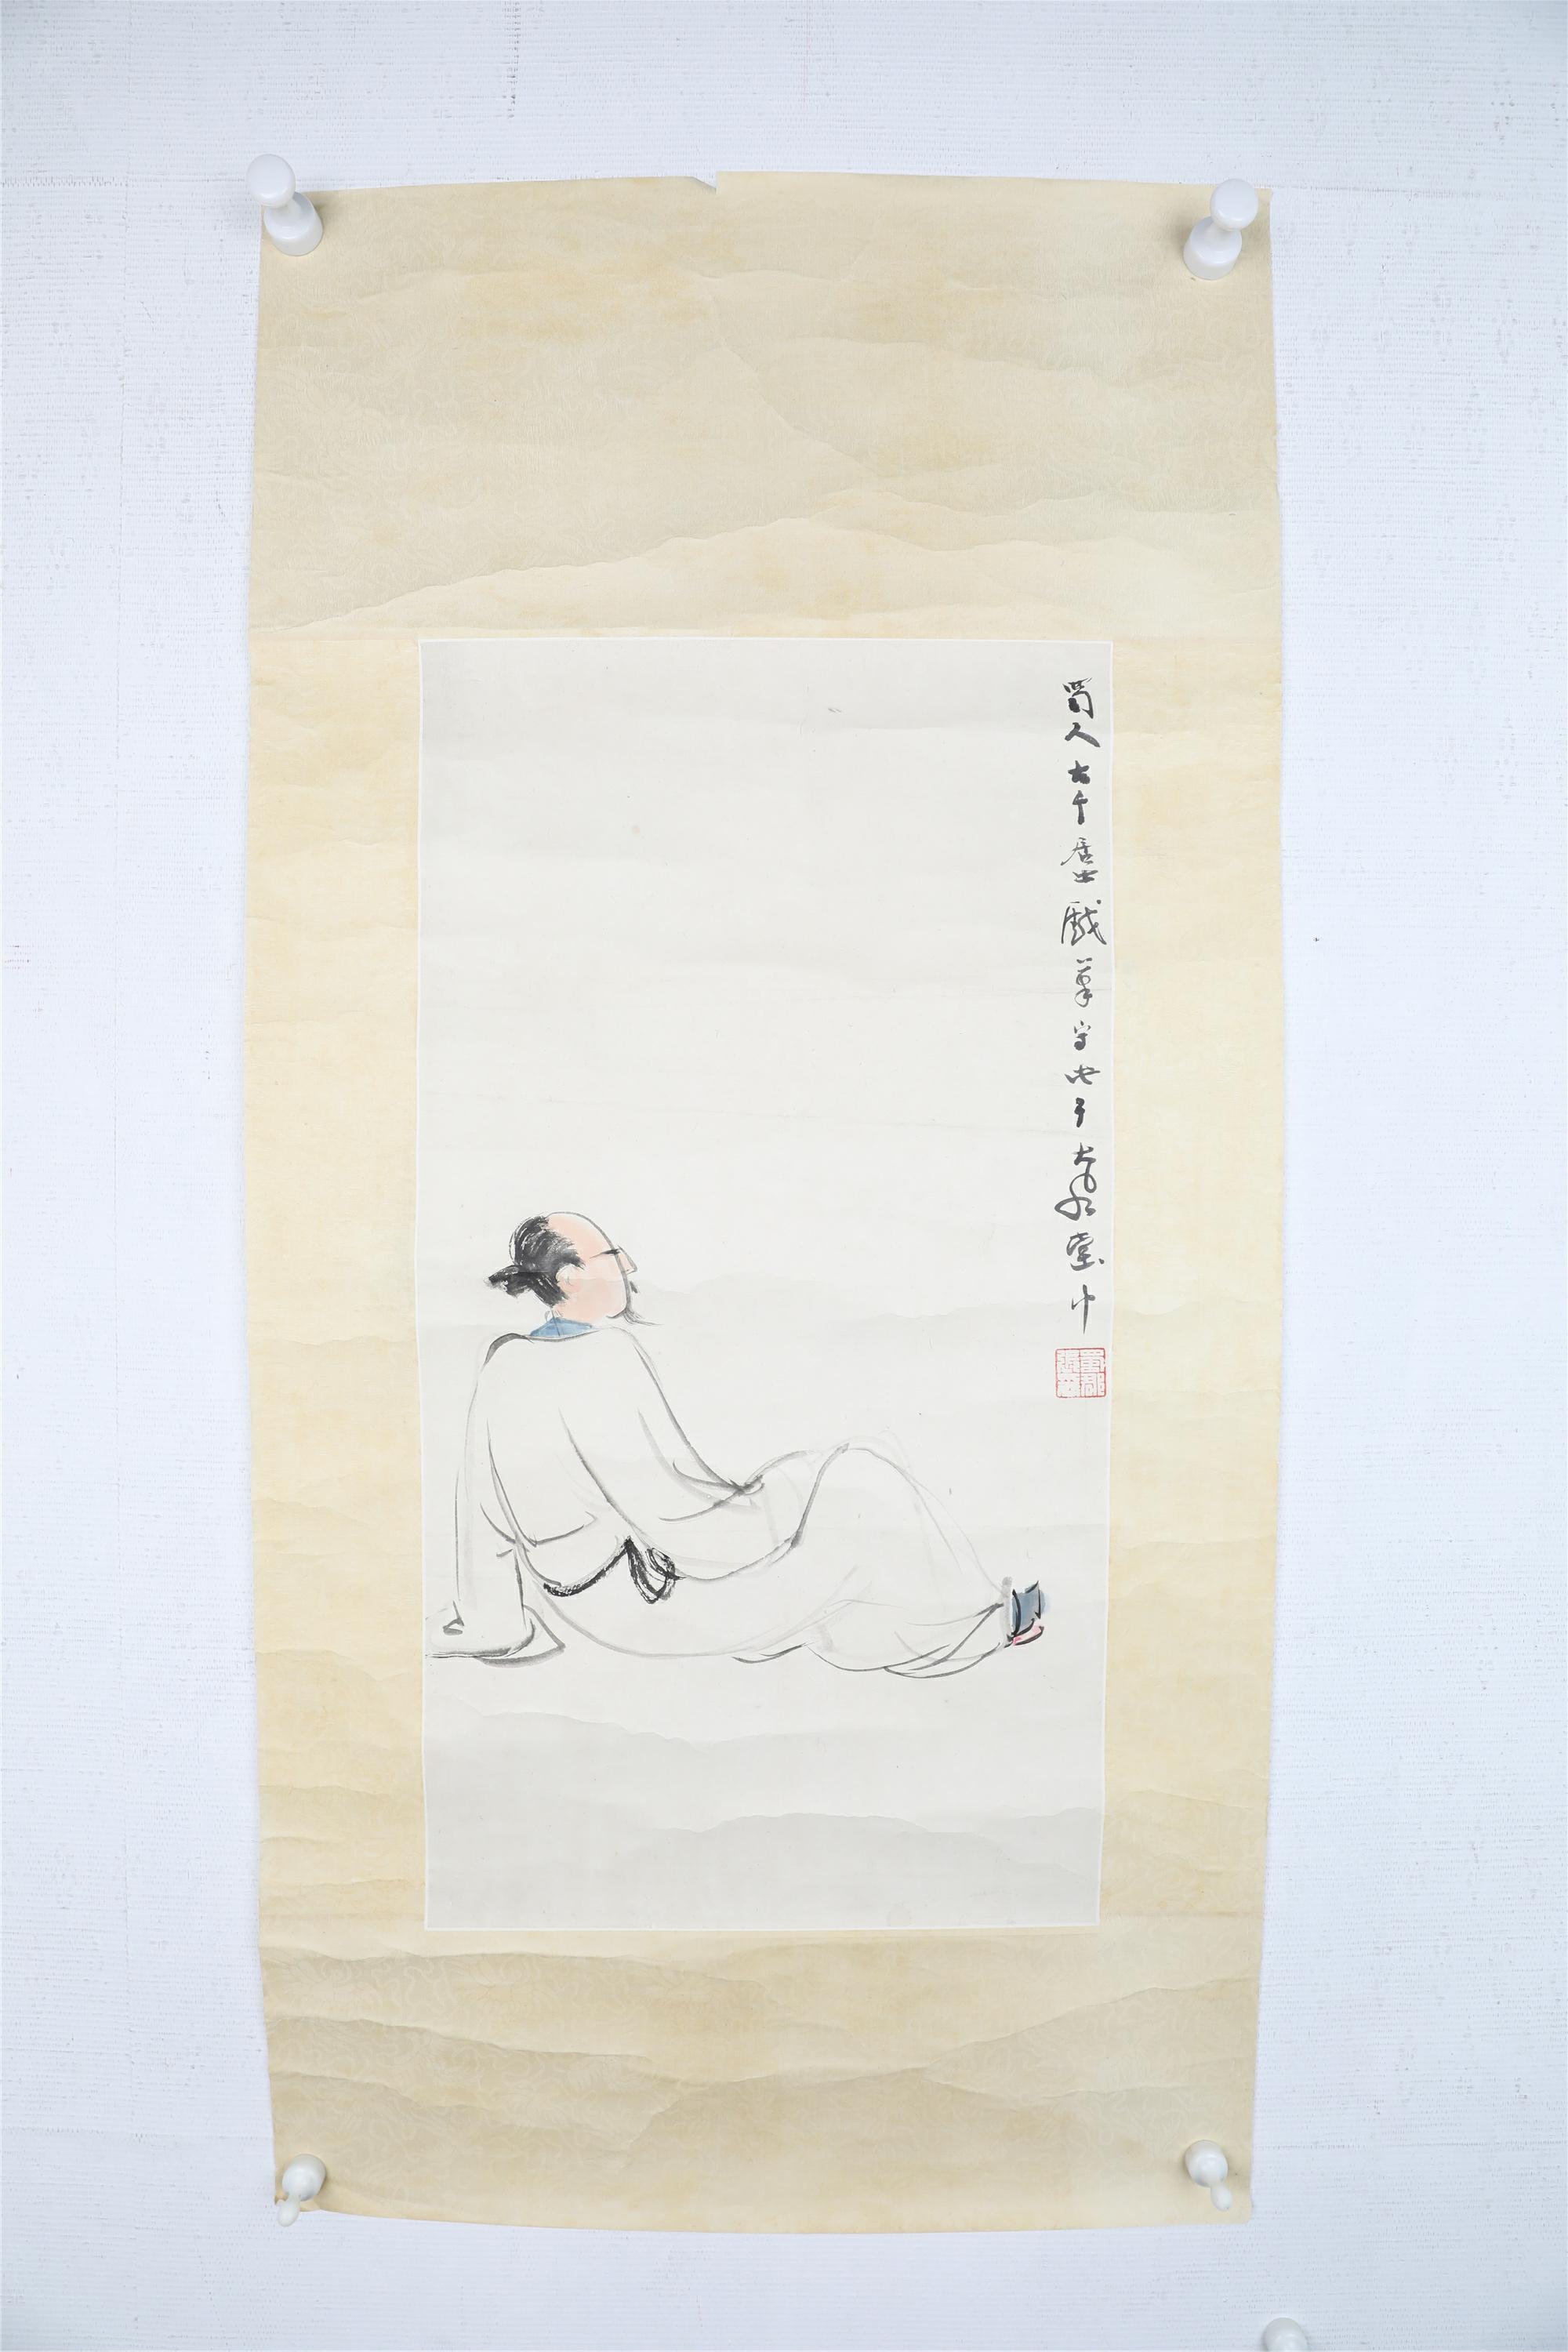 蜀人大千居士戲筆寫此于大風堂中